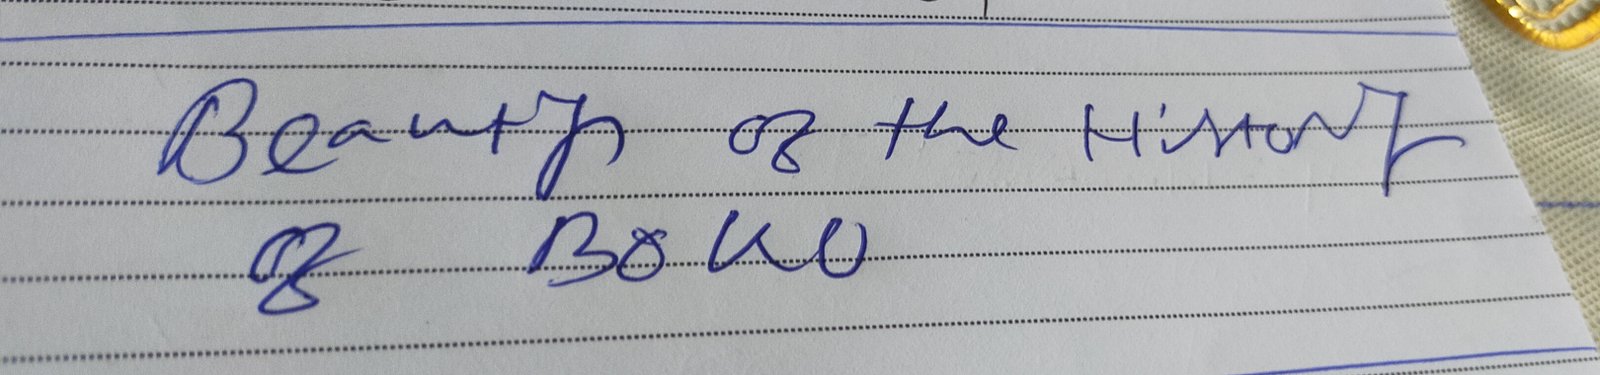 Beauty of the History
of BOKO